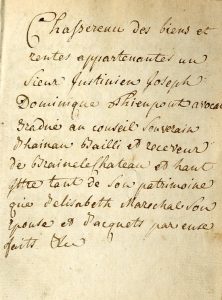 Chassereau des biens et
rentes appartenantes au
Sieur Justinien Joseph
Dominique Thienpont avocat
Gradué au conseil Souverain
d'hainau Bailli et receveur
de Brainele Chateau et haut
Ittre tant de Son patrimoine
que d'elisabeth Marechal Son
epouse et d'acquets par euse
faits &c